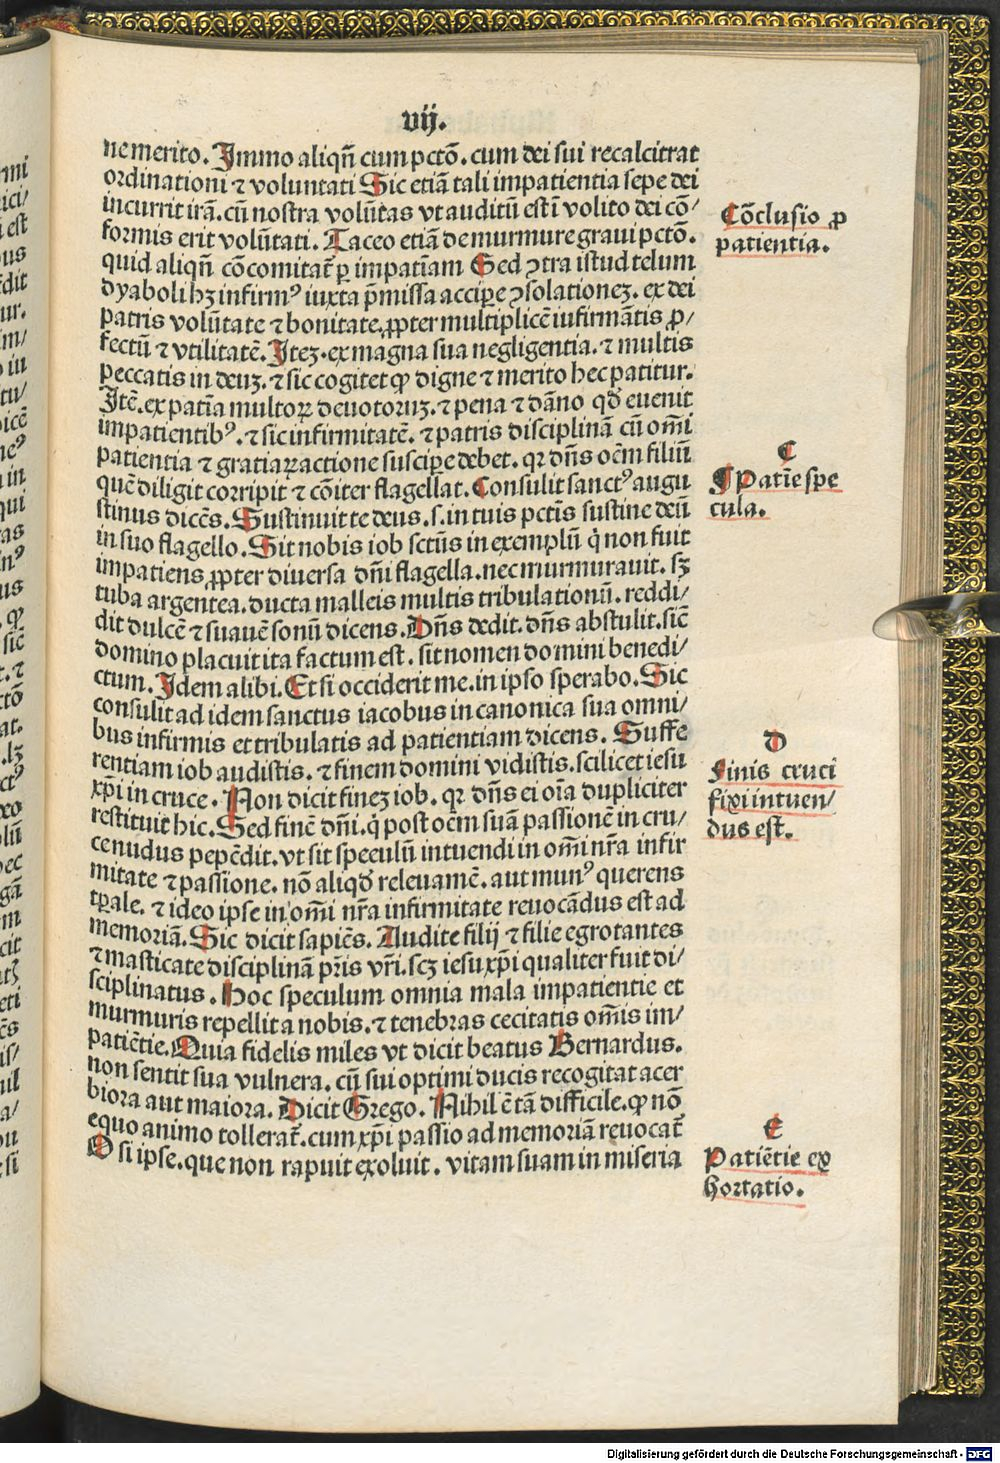 vij.
ne merito. Immo aliqn̄ cum pctō. cum dei sui recalcitrat
ordinationi ⁊ voluntati Sic etiā tali impatientia sepe dei
incurrit irā. cū nostra volūtas vt auditū est ī volito dei cō/
formis erit volūtati. Taceo etiā de murmure graui pctō.
quid aliqn̄ cōcomitat̄ ꝑ impatiam Sed ꝯtra istud telum
dyaboli hꝫ infirmꝰ iuxta p̄missa accipe ꝯsolationeꝫ. ex dei
patris volūtate ⁊ bonitate. ꝓpter multiplicē iufirmātis ꝓ/
fectū ⁊ vtilitatē. Iteꝫ. ex magna sua negligentia. ⁊ multis
peccatis in deuꝫ. ⁊ sic cogitet ꝙ digne ⁊ merito hec patitur.
Itē. ex patia multoꝝ deuotoruꝫ. ⁊ pena ⁊ dāno qd̄ euenit
impatientibꝰ. ⁊ sic infirmitatē. ⁊ patris disciplinā cū om̄i
patientia ⁊ gratiaꝝ actione suscipe debet. qꝛ dn̄s oēm filiū
quē diligit corripit ⁊ cōiter flagellat. Consulit sanctꝰ augu
stinus dicēs. Sustinuit te deus. s. in tuis pctis sustine deū
in suo flagello. Sit nobis iob sctūs in exemplū q̇ non fuit
impatiens ꝓpter diuersa dn̄i flagella. nec murmurauit. sꝫ
tuba argentea. ducta malleis multis tribulationū. reddi/
dit dulcē ⁊ suauē sonū dicens. Dn̄s dedit. dn̄s abstulit. sicē
domino placuit ita factum est. sit nomen domini benedi/
ctum. Idem alibi. Et si occiderit me. in ipso sperabo. Sic
consulit ad idem sanctus iacobus in canonica sua omni/
bus infirmis et tribulatis ad patientiam dicens. Suffe
rentiam iob audistis. ⁊ finem domini vidistis. scilicet iesu
xp̄i in cruce. Non dicit fineꝫ iob. qꝛ dn̄s ei oīa dupliciter
restituit hic. Sed finē dn̄i. q̇ post oēm suā passionē in cru/
ce nudus pepēdit. vt sit speculū intuendi in om̄i nr̄a infir
mitate ⁊ passione. nō aliqd̄ releuamē. aut munꝰ querens
tp̄ale. ⁊ ideo ipse in om̄i nr̄a infirmitate reuocādus est ad
memoriā. Sic dicit sapiēs. Audite filij ⁊ filie egrotantes
⁊ masticate disciplinā pr̄is vr̄i. scꝫ iesu xp̄i qualiter fuit di/
sciplinatus. Hoc speculum omnia mala impatientie et
murmuris repellit a nobis. ⁊ tenebras cecitatis om̄is im/
patiētie. Quia fidelis miles vt dicit beatus Bernardus.
non sentit sua vulnera. cū sui optimi ducis recogitat acer
biora aut maiora. Dicit Grego. Nihil ē tā difficile. ꝙ nō
equo animo tollerat̄. cum xp̄i passio ad memoriā reuocat̄
O si ipse. que non rapuit exoluit. vitam suam in miseria
Cōclusio ꝓ
patientia.
C
Patiē spe
cula.
D
Finis cruci
fixi intuen/
dus est.
E
Patiētie ex
hortatio.
Digitalisierung gefördert durch die Deutsche Forschungsgemeinschaft - DFG